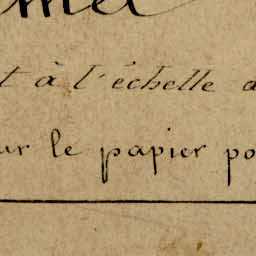 t à l'échelle d
ur le papier po